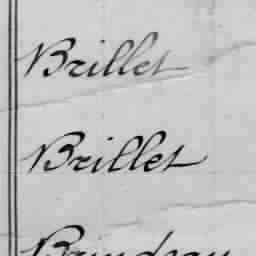 Brillet
Brillet